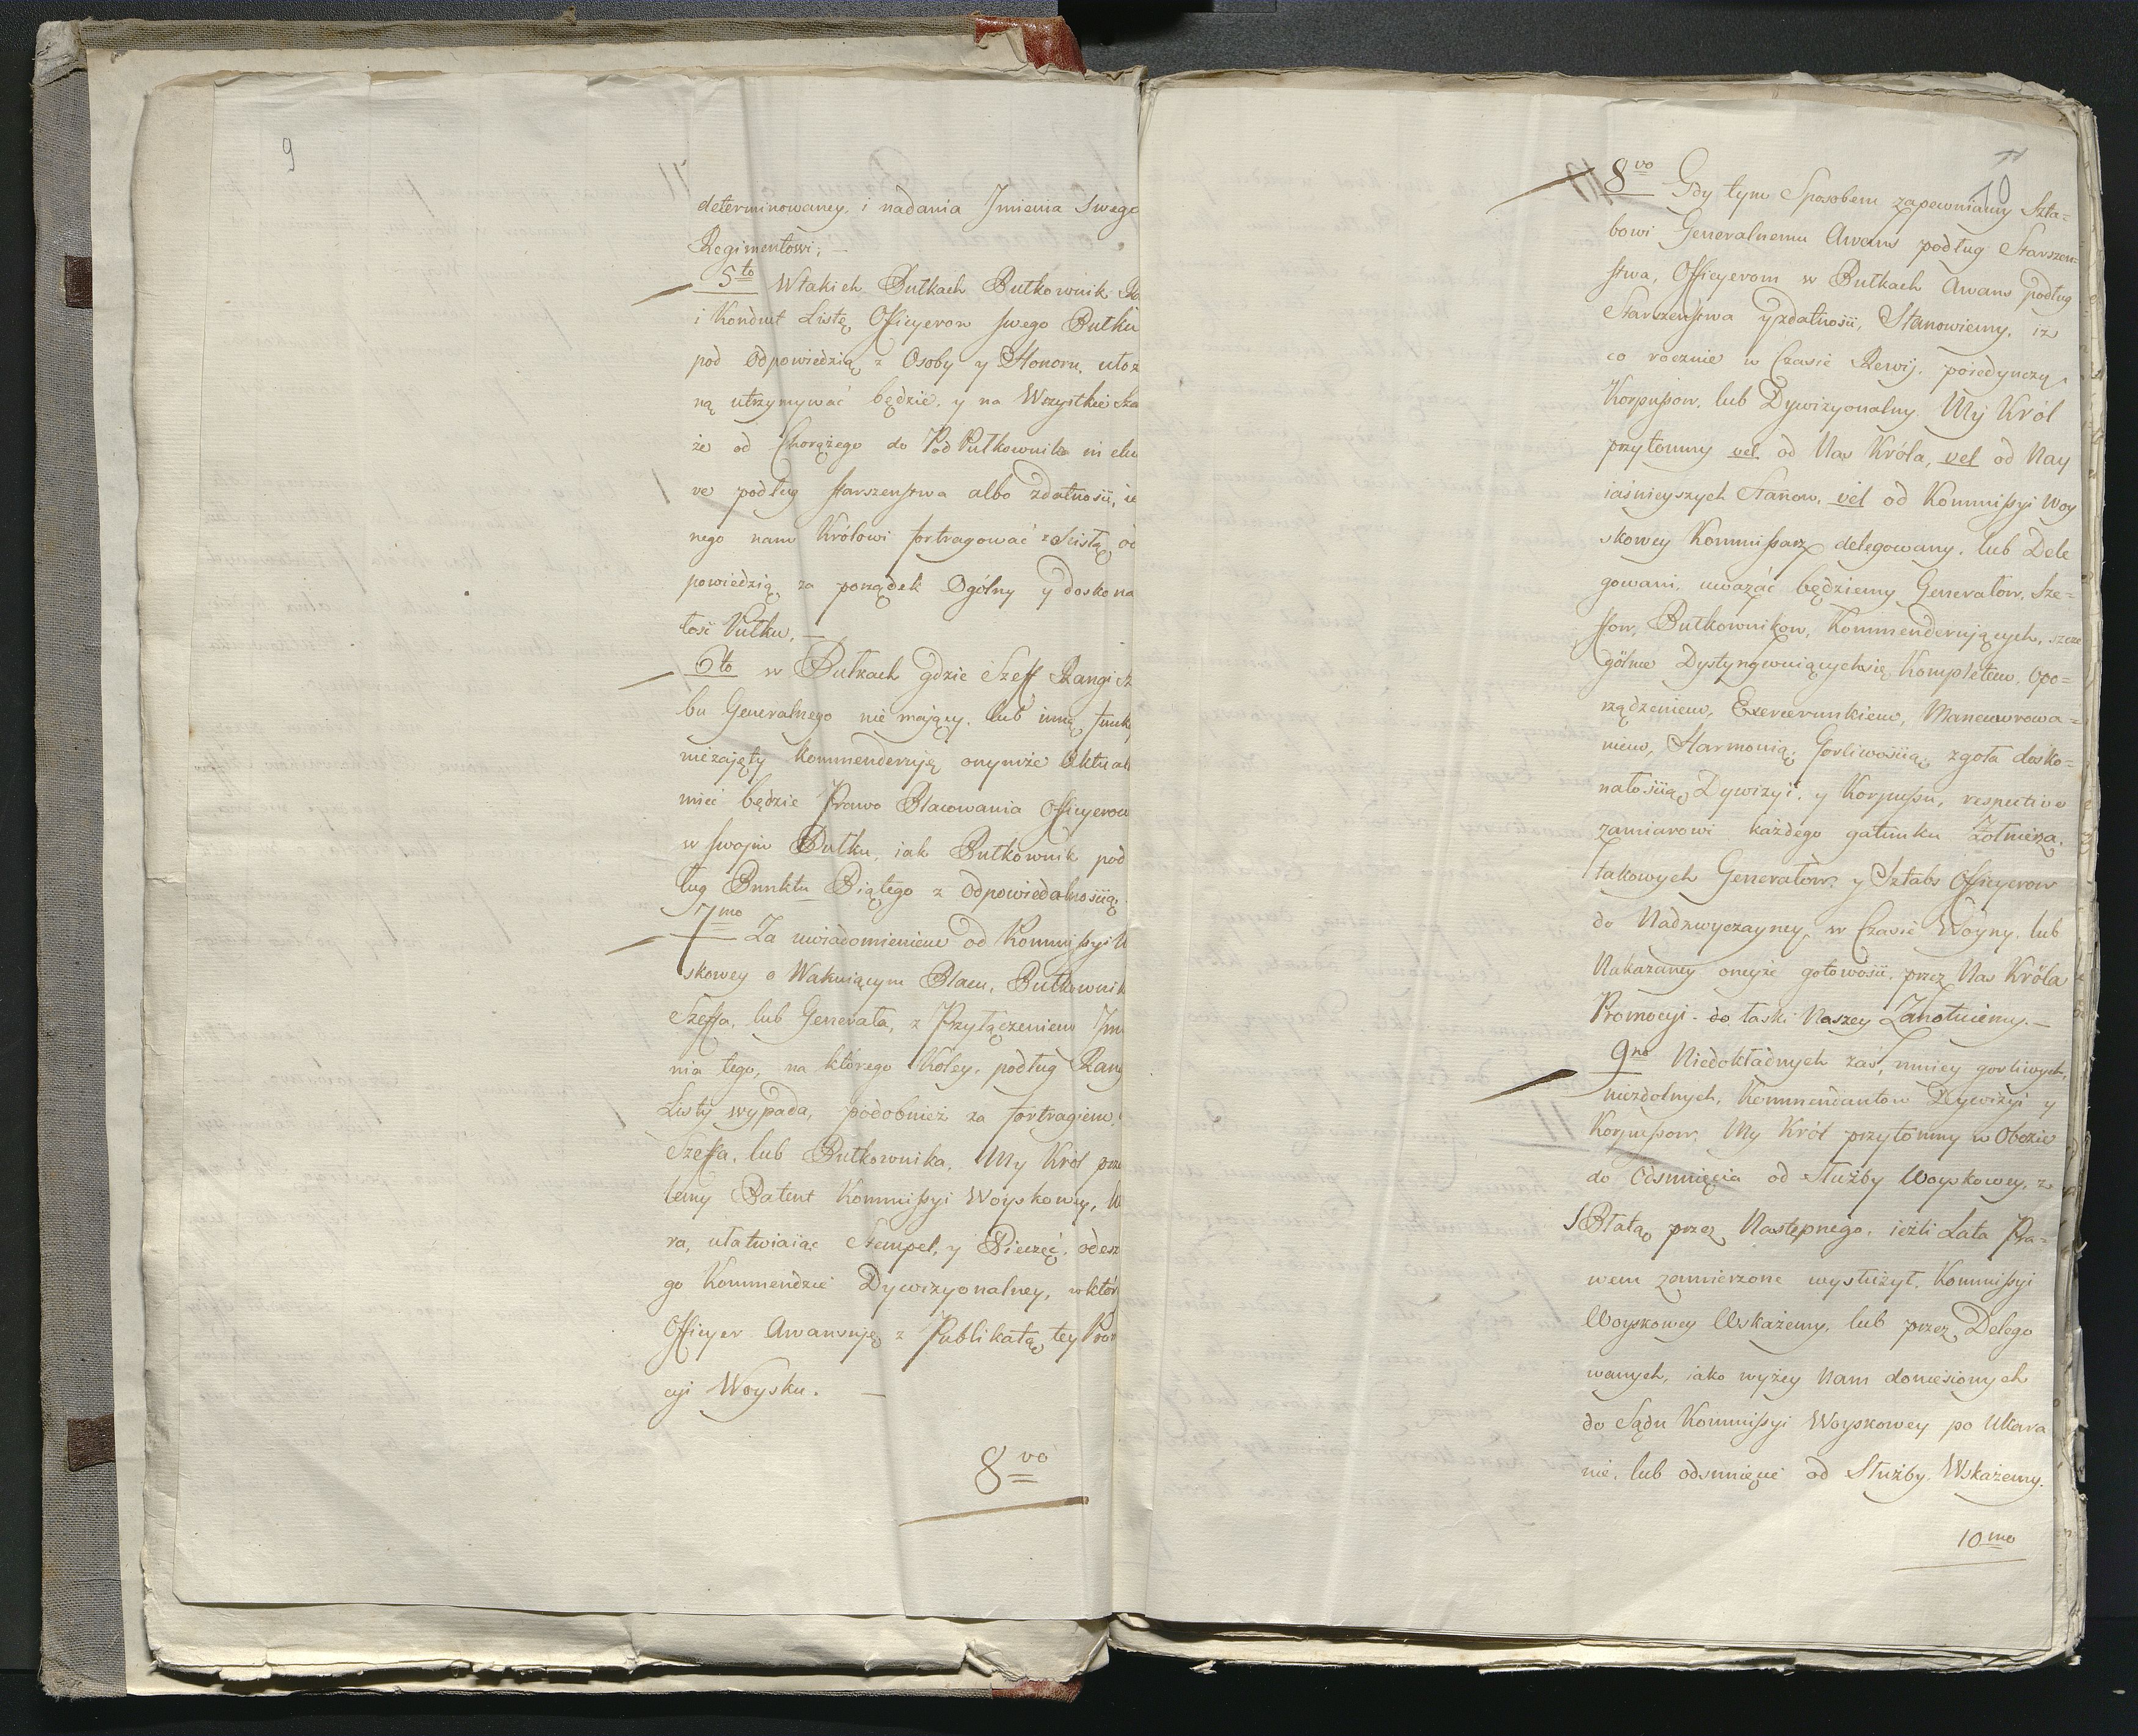 9
determinowaney, i nadania Jmienia Swego
Regimentowi; —
5to Wtakich Pułkach Pułkownik
i Konduit Listę Officyerow swego Pułku
pod Odpowiedzią z Osoby y Honoru, ułoż
ną utrzymywać będzie, y na Wszystkie Sza
że od Chorążego do Pod Pułkownika in clu
ve podług starszenstwa albo zdatności, ie
nego nam Królowi fortragować z Scisłą od
powiedzią za porządek Ogólny y doskona
łość Pułku. —
6to w Pułkach gdzie Szeff Rangi Szt
bu Generalnego nie mający, lub inną funk
niezajęty Kommenderuję onymże Aktual
mieć będzie Prawo Placowania Officyerow
w swojm Pułku, iak Pułkownik pod
ług Punktu Piątego z Odpowiedalnością
7mo Za uwiadomieniem od Kommissyi W
skowey o Wakuiącym Placu, Pułkownik
Szeffa, lub Generała, z Przyłączeniem Jmi
nia tego, na którego Koley, podług Rang
Listy wypada, podobnież za fortragiem
Szeffa, lub Pułkownika, My Król prze
lemy Patent Kommissyi Woyskowey, kt
ra, ułatwiaiąc Stempel, y Pieczęć, odesz
go Kommendzie Dywizyonalney, w któr
Officyer Awansuję z Publikatą tey Pro
cyi Woysku. —
8vo
10
8vo Gdy tym Sposobem zapewniamy Szta=
bowi Generalnemu Awans podług Starszen=
stwa, Officyerom w Pułkach Awans podług
Starszenstwa y zdatności, Stanowiemy, iż
co rocznie w Czasie Rewij, poiedynczy
Korpussow, lub Dywizyonalny My Król
przytomny vel od Nas Króla, vel od Nay
iaśnieyszych Stanow, vel od Kommissyi Woy
skowey Kommissarz delegowany, lub Dele
gowani, uważać będziemy Generałow, Sze=
ffow, Pułkownikow, Kommenderuiących, szcze
gólnie Dystyngwuiącychsię Kompletem, Opo=
rządzeniem, Exercerunkiem, Manewrowa=
niem, Harmonią, Gorliwością, zgoła dosko=
nałością Dywizyi, y Korpusu, respective
zamiarowi każdego gatunku Żołnierza,
takowych Generałów, y Sztabs Officyerow
do Nadzwyczayney w Czasie Woyny, lub
Nakazaney oneyże gotowości, przez Nas Króla
Promocyi do łaski Naszey Zanotuiemy. —
9no Niedokładnych zaś, mniey gorliwych,
niezdolnych, Kommendantow Dywizyi y
Korpussow, My Król przytomny w Obozie
do Odsunięcia od Służby Woyskowey, z
Płatą przez Następnego, ieżli Lata Pra=
wem zamierzone wysłużył, Kommissyi
Woyskowey Wskażemy, lub przez Delego
wanych, iako wyżey Nam doniesionych
do Sądu Kommissyi Woyskowey po Ukara
nie, lub odsunięcie od Służby Wskażemy.
10mo